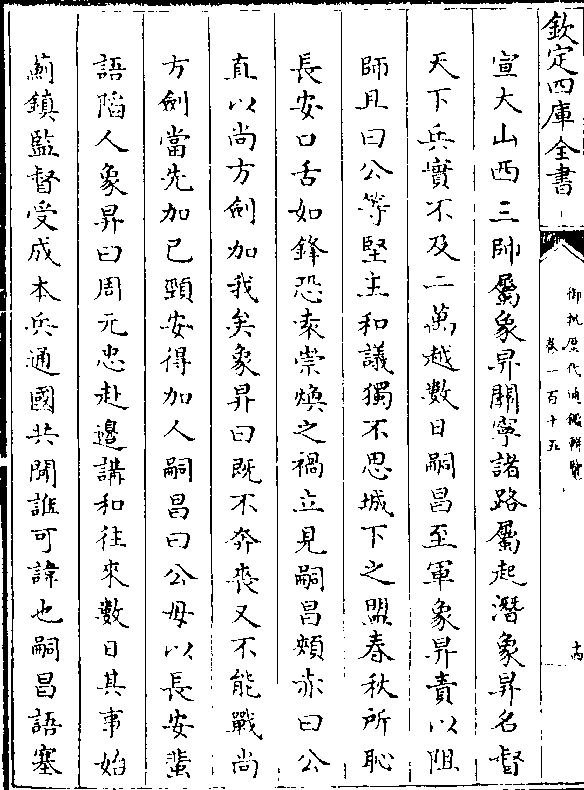 欽定四庫全書
御批歷代通鑑輯覽
卷一百十五
宣大山西三帥屬象昇關寧諸路屬起潛象昇名督
天下兵實不及二萬越數日嗣昌至軍象昇責以阻
師且曰公等堅主和議獨不思城下之盟春秋所恥
長安口舌如鋒恐袁崇煥之禍立見嗣昌頰赤曰公
直以尚方劍加我矣象昇曰既不奔喪又不能戰尚
方劍當先加己頸安得加人嗣昌曰公毋以長安蜚
語陷人象昇曰周元忠赴邊講和往來數日其事始
薊鎮監督受成本兵通國共聞誰可諱也嗣昌語塞